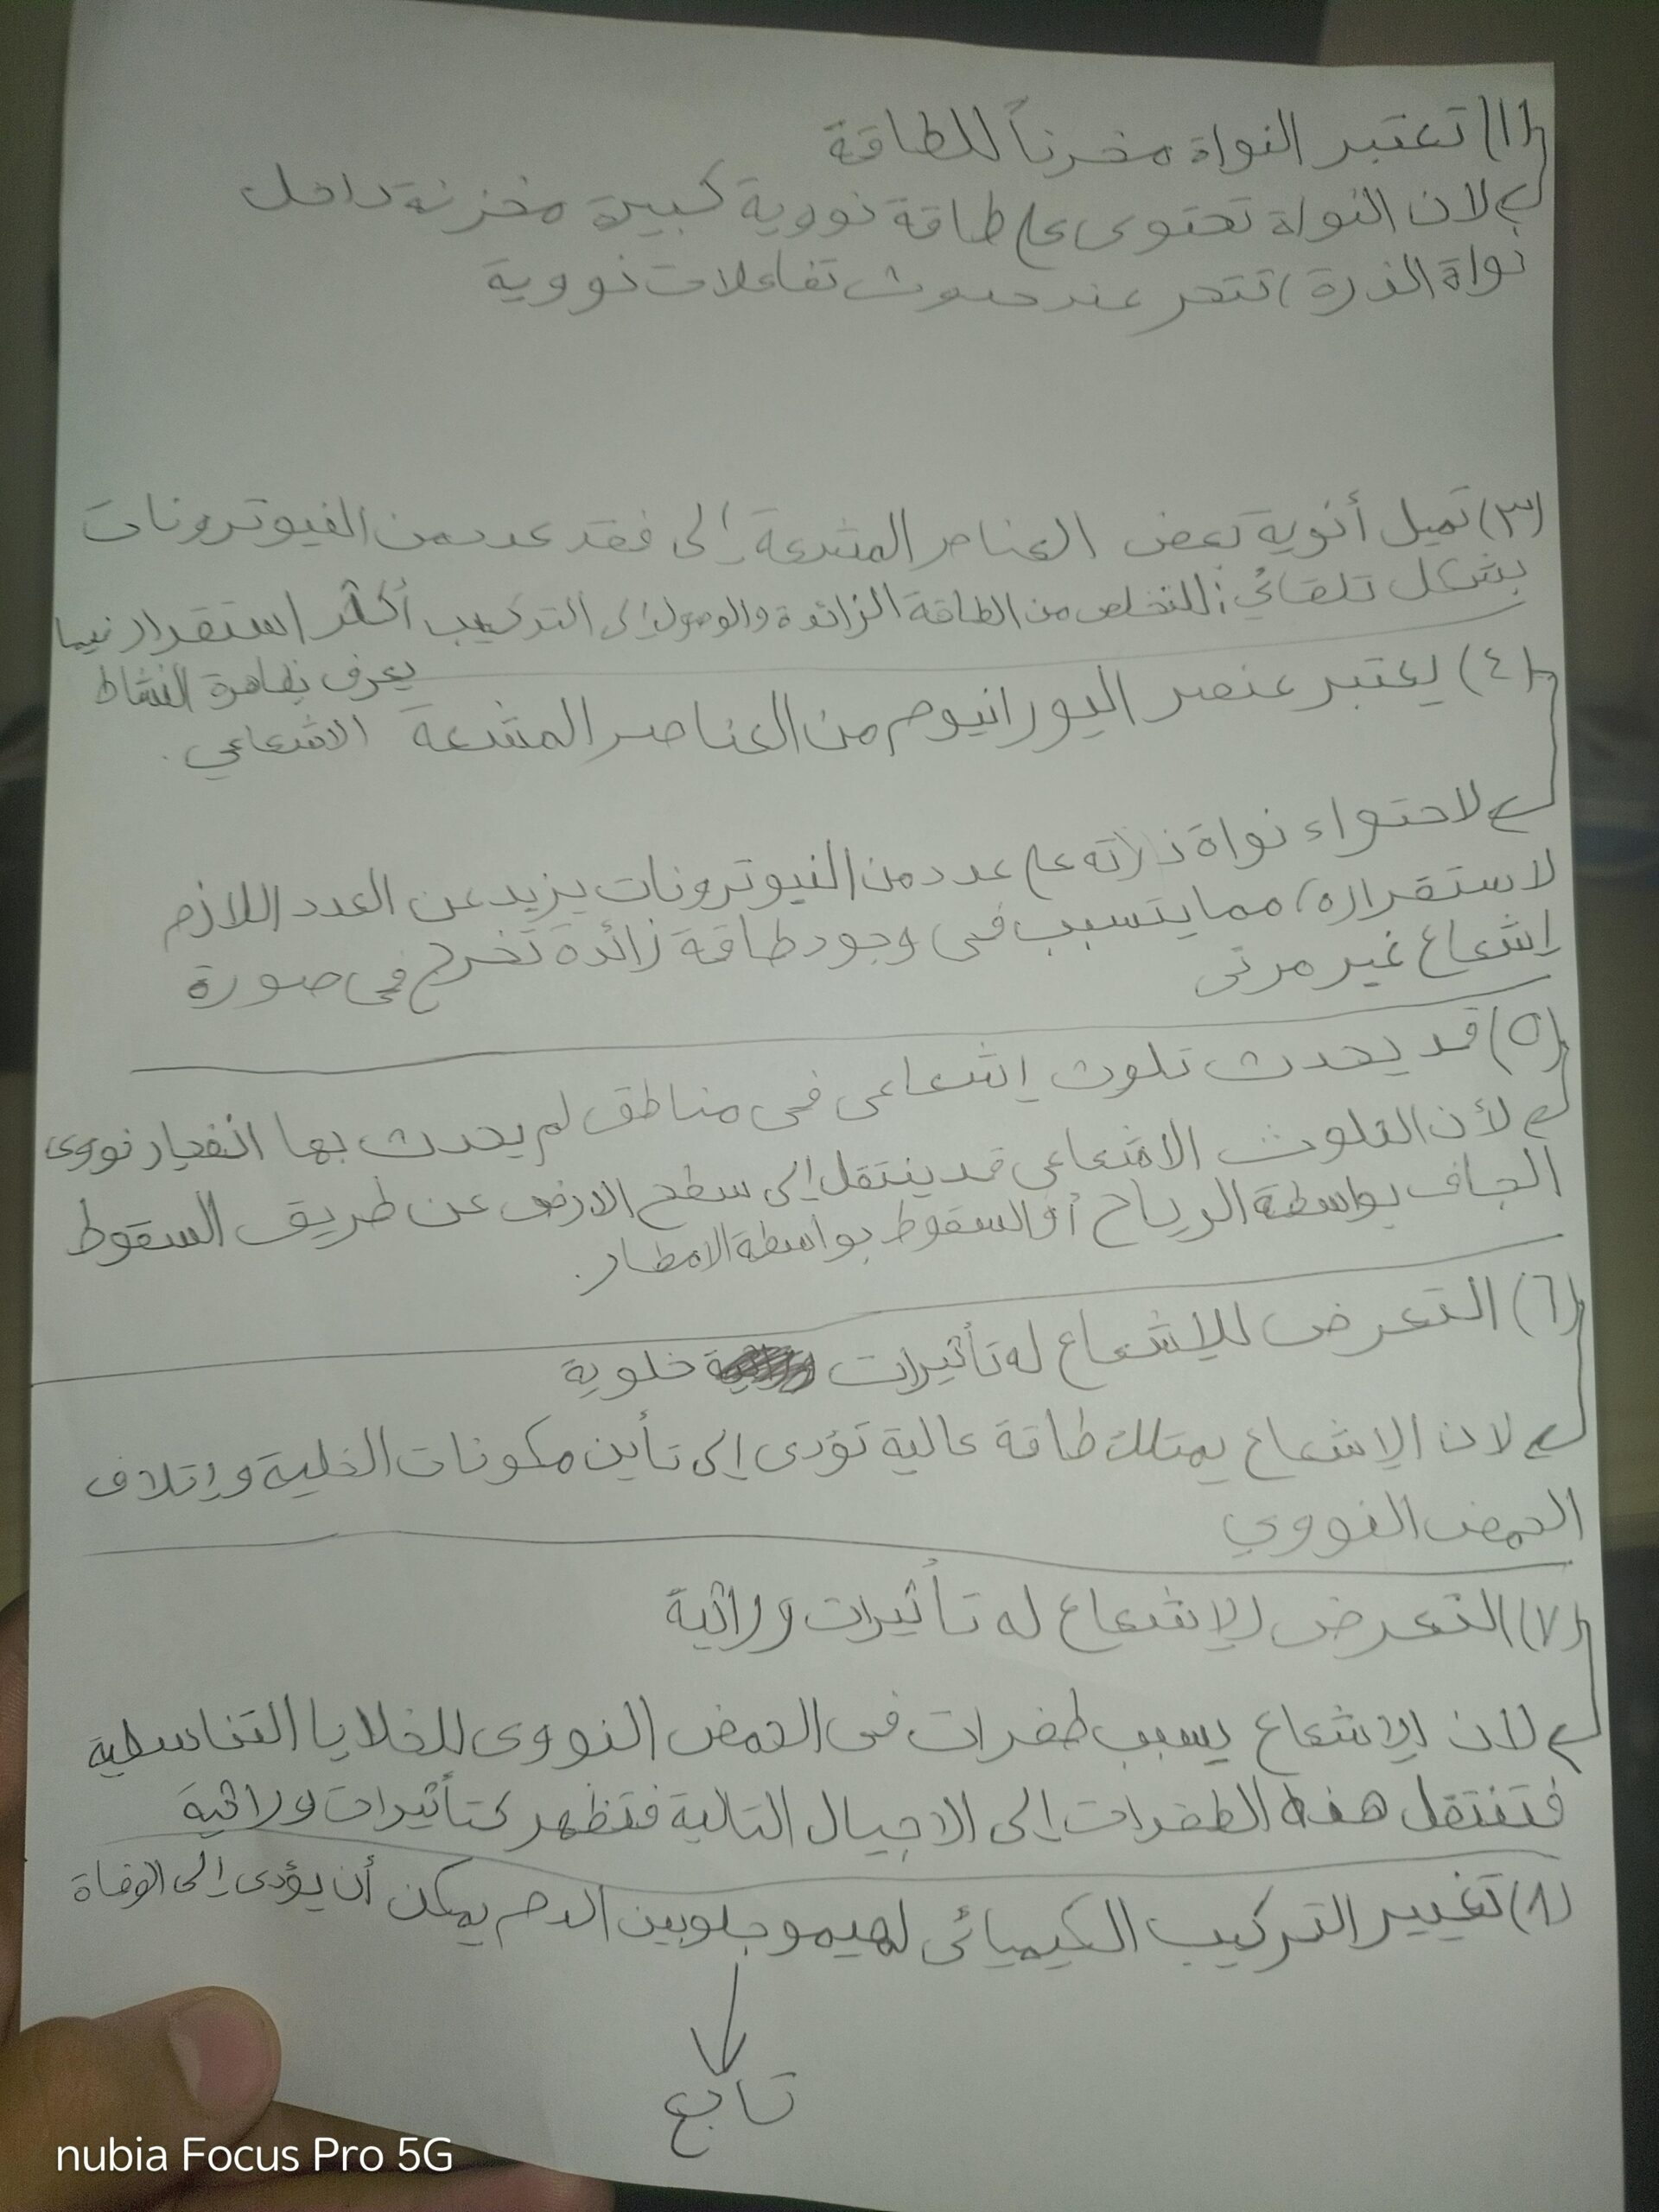 (١) تعتبر النواة مخزناً للطاقة
لان النواة تحتوى على طاقة نووية كبيرة مخزنة داخل
نواة الذرة، تتحر عند حدوث تفاعلات نووية
(٣) تميل أنوية بعض العناصر المشعة إلى فقد عدد من النيوترونات
بشكل تلقائي: للتخلص من الطاقة الزائدة والوصول إلى التركيب أكثر استقرار فيما
يعرف بظاهرة النشاط
الاشعاعي.
(٤) يعتبر عنصر اليورانيوم من العناصر المشعة
لاحتواء نواة ذراته على عدد من النيوترونات يزيد عن العدد اللازم
لاستقراره، مما يتسبب فى وجود طاقة زائدة تخرج فى صورة
إشعاع غير مرئى
(٥) قد يحدث تلوث إشعاعى فى مناطق لم يحدث بها انفجار نووى
لأن التلوث الاشعاعى قد ينتقل إلى سطح الارض عن طريق السقوط
الجاف بواسطة الرياح أو السقوط بواسطة الامطار.
(٦) التعرض للإشعاع له تأثيرات خلوية
لان الإشعاع يمتلك طاقة عالية تؤدى إلى تأين مكونات الخلية وإتلاف
الحمض النووي
(٧) التعرض للإشعاع له تأثيرات وراثية
لان الإشعاع يسبب طفرات فى الحمض النووى للخلايا التناسلية
فتنتقل هذه الطفرات إلى الاجيال التالية فتظهر كتأثيرات وراثية
(٨) تغيير التركيب الكيميائى لهيموجلوبين الدم يمكن أن يؤدى إلى الوفاة
تابع
nubia Focus Pro 5G